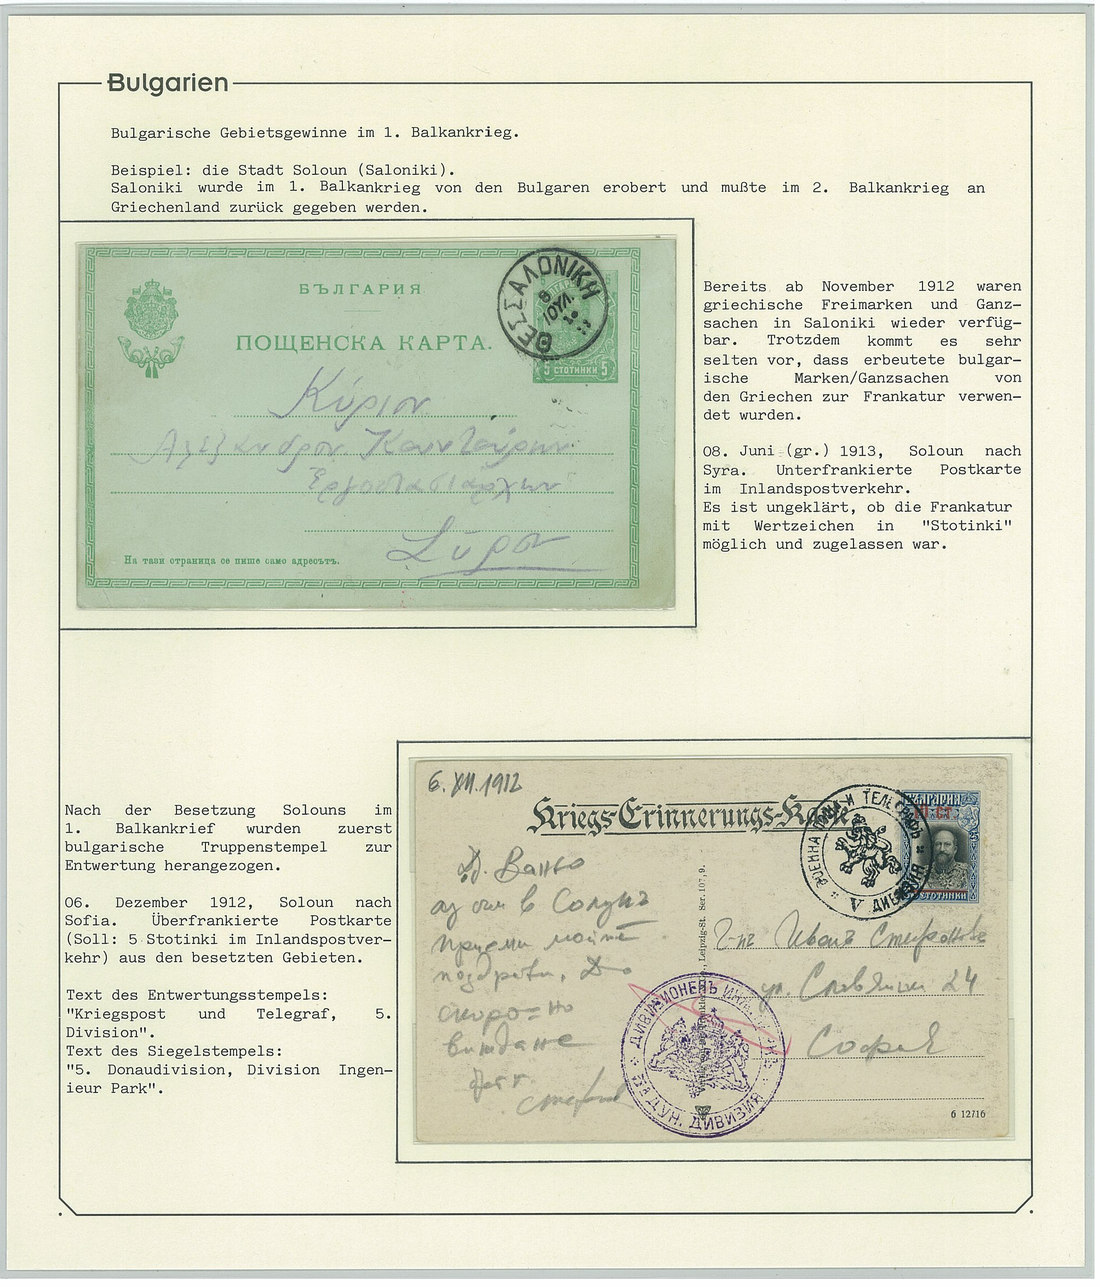 Bulgarien
Bulgarische Gebietsgewinne im 1. Balkankrieg.
Beispiel: die Stadt Soloun (Saloniki).
Saloniki wurde im 1. Balkankrieg von den Bulgaren erobert und mußte im 2. Balkankrieg an
Griechenland zurück gegeben werden.
БЪЛГАРИЯ
ПОЩЕНСКА КАРТА.
ΘΕΣΣΑΛΟΝΙΚΗ
8 ΙΟΥΛ.
5 СТОТИНКИ 5
Κύριον
Σύρον
На тази страница се пише само адресътъ.
Bereits ab November 1912 waren
griechische Freimarken und Ganz-
sachen in Saloniki wieder verfüg-
bar. Trotzdem kommt es sehr
selten vor, dass erbeutete bulgar-
ische Marken/Ganzsachen von
den Griechen zur Frankatur verwen-
det wurden.
08. Juni (gr.) 1913, Soloun nach
Syra. Unterfrankierte Postkarte
im Inlandspostverkehr.
Es ist ungeklärt, ob die Frankatur
mit Wertzeichen in "Stotinki"
möglich und zugelassen war.
Nach der Besetzung Solouns im
1. Balkankrief wurden zuerst
bulgarische Truppenstempel zur
Entwertung herangezogen.
06. Dezember 1912, Soloun nach
Sofia. Überfrankierte Postkarte
(Soll: 5 Stotinki im Inlandspostver-
kehr) aus den besetzten Gebieten.
Text des Entwertungsstempels:
"Kriegspost und Telegraf, 5.
Division".
Text des Siegelstempels:
"5. Donaudivision, Division Ingen-
ieur Park".
6. XII. 1912
Kriegs-Erinnerungs-Karte
ВОЕННА ПОЩА И ТЕЛЕГРАФЪ
V ДИВИЗИЯ
БЪЛГАРИЯ
СТОТИНКИ
Д. Ваньо
аз съм в Солунъ
приеми моите
поздрави. До
скоро
виждане
Leipzig-St. Ser. 107, 9.
Г-нъ Иванъ Стефановъ
ул. Славянска 24
София
ДИВИЗИОНЕНЪ
ДУН. ДИВИЗИЯ
6 12716